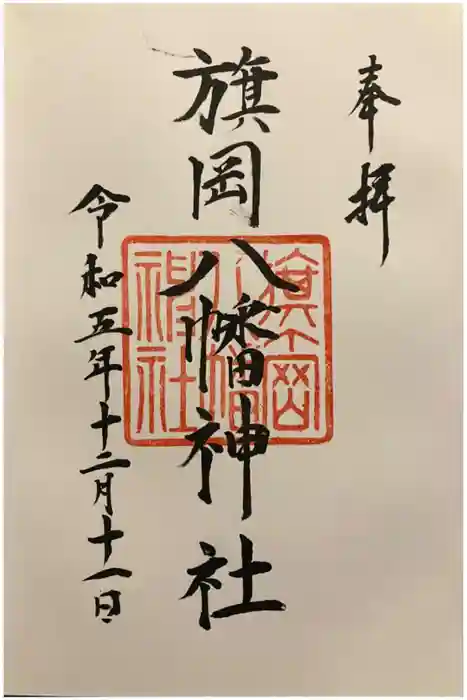 奉拝
旗岡八幡神社
令和五年十二月十一日
旗岡
八幡
神社